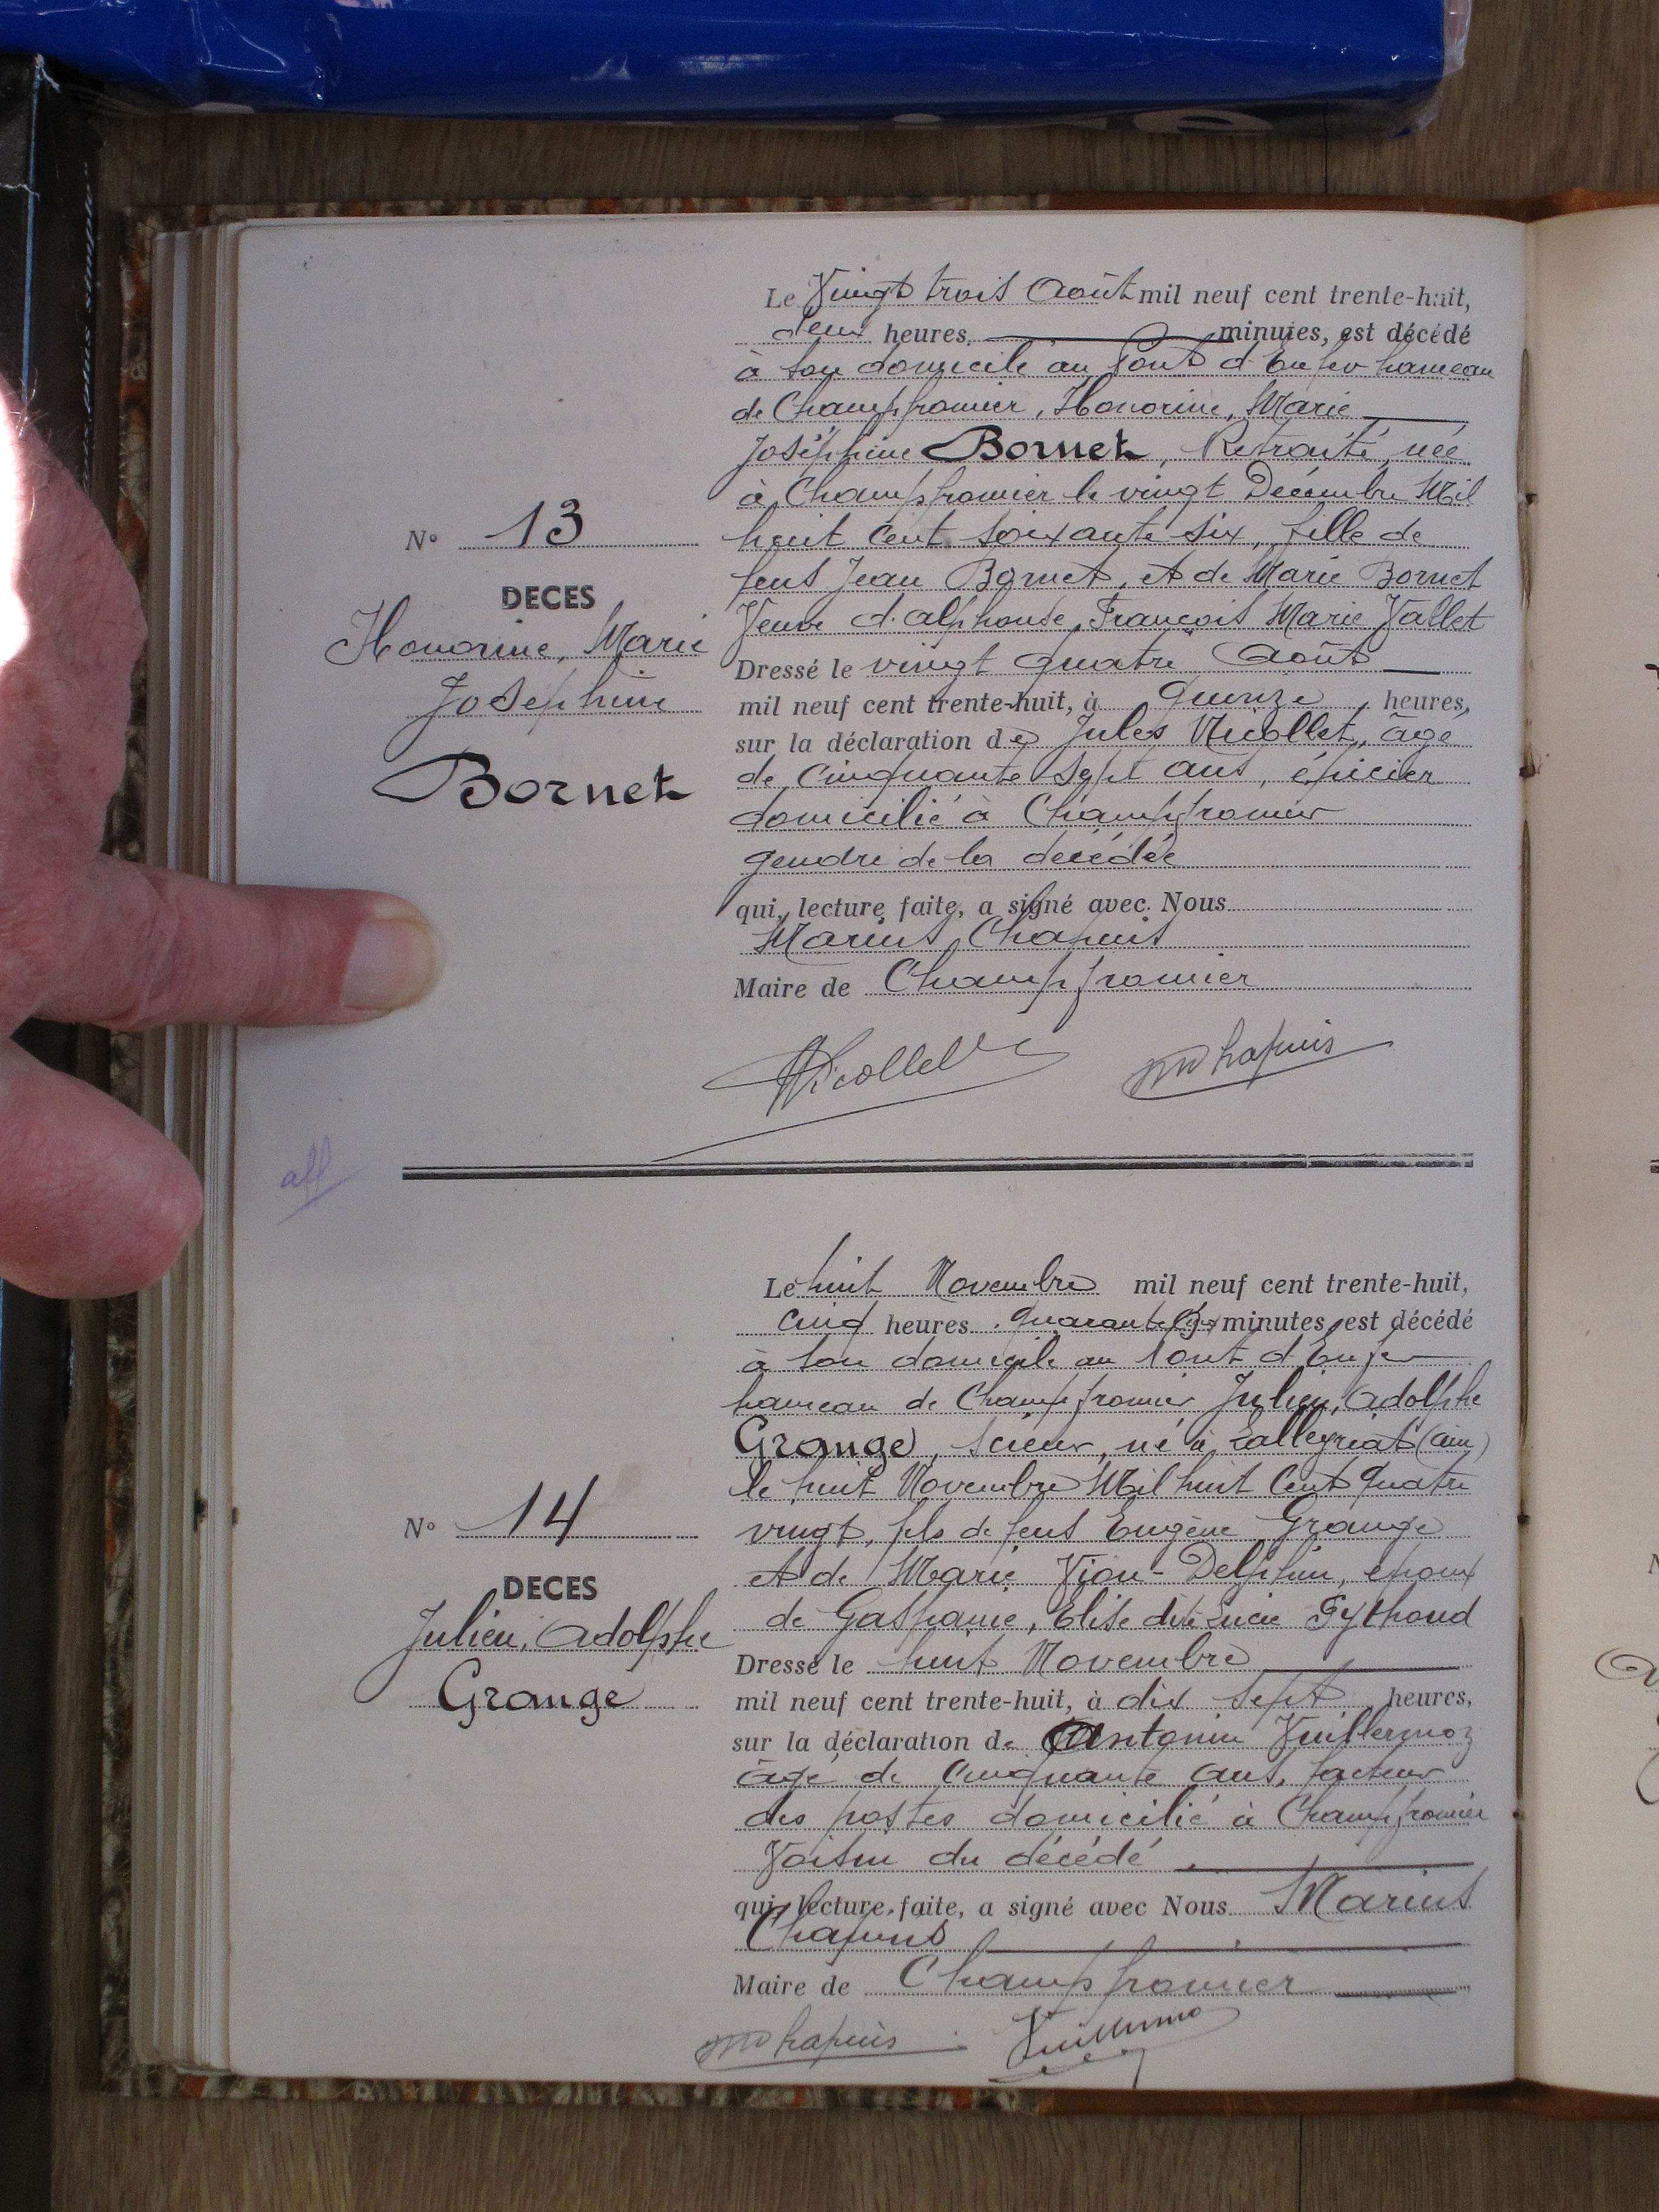 Le Vingt trois Août mil neuf cent trente-huit,
deux heures minutes, est décédé
à son domicile au Pont d'Enfer hameau
de Champfromier, Honorine, Marie
Joséphine Bornet, Retraité, née
à Champfromier le vingt Décembre Mil
huit cent soixante six, fille de
feus Jean Bornet, et de Marie Bornet
Veuve d'alphonse, François Marie Vallet
N° 13
DECES
Honorine, Marie
Joséphine
Bornet
Dressé le vingt quatre Août
mil neuf cent trente-huit, à quinze heures,
sur la déclaration de Jules Nicollet, âgé
de cinquante sept ans, épicier
domicilié à Champfromier
gendre de la décédée
qui, lecture faite, a signé avec Nous
Marius Chapuis
Maire de Champfromier
Nicollet
M Chapuis
aff
Le huit Novembre mil neuf cent trente-huit,
cinq heures quarante minutes, est décédé
à son domicile au Pont d'Enfer
hameau de Champfromier Julien, Adolphe
Grange, scieur, né à Lalleyriat (ain)
le huit Novembre Mil huit Cent quatre
vingt, fils de feus Eugène Grange
et de Marie Vion-Delphin, époux
de Gasparie, Elise dite Lucie Eythoud
N° 14
DECES
Julien, Adolphe
Grange
Dressé le huit Novembre
mil neuf cent trente-huit, à dix sept heures,
sur la déclaration de Antonin Vuillermoz
âgé de cinquante ans, facteur
des postes domicilié à Champfromier
Voisin du décédé
qui, lecture faite, a signé avec Nous Marius
Chapuis
Maire de Champfromier
M Chapuis
Vuillermoz